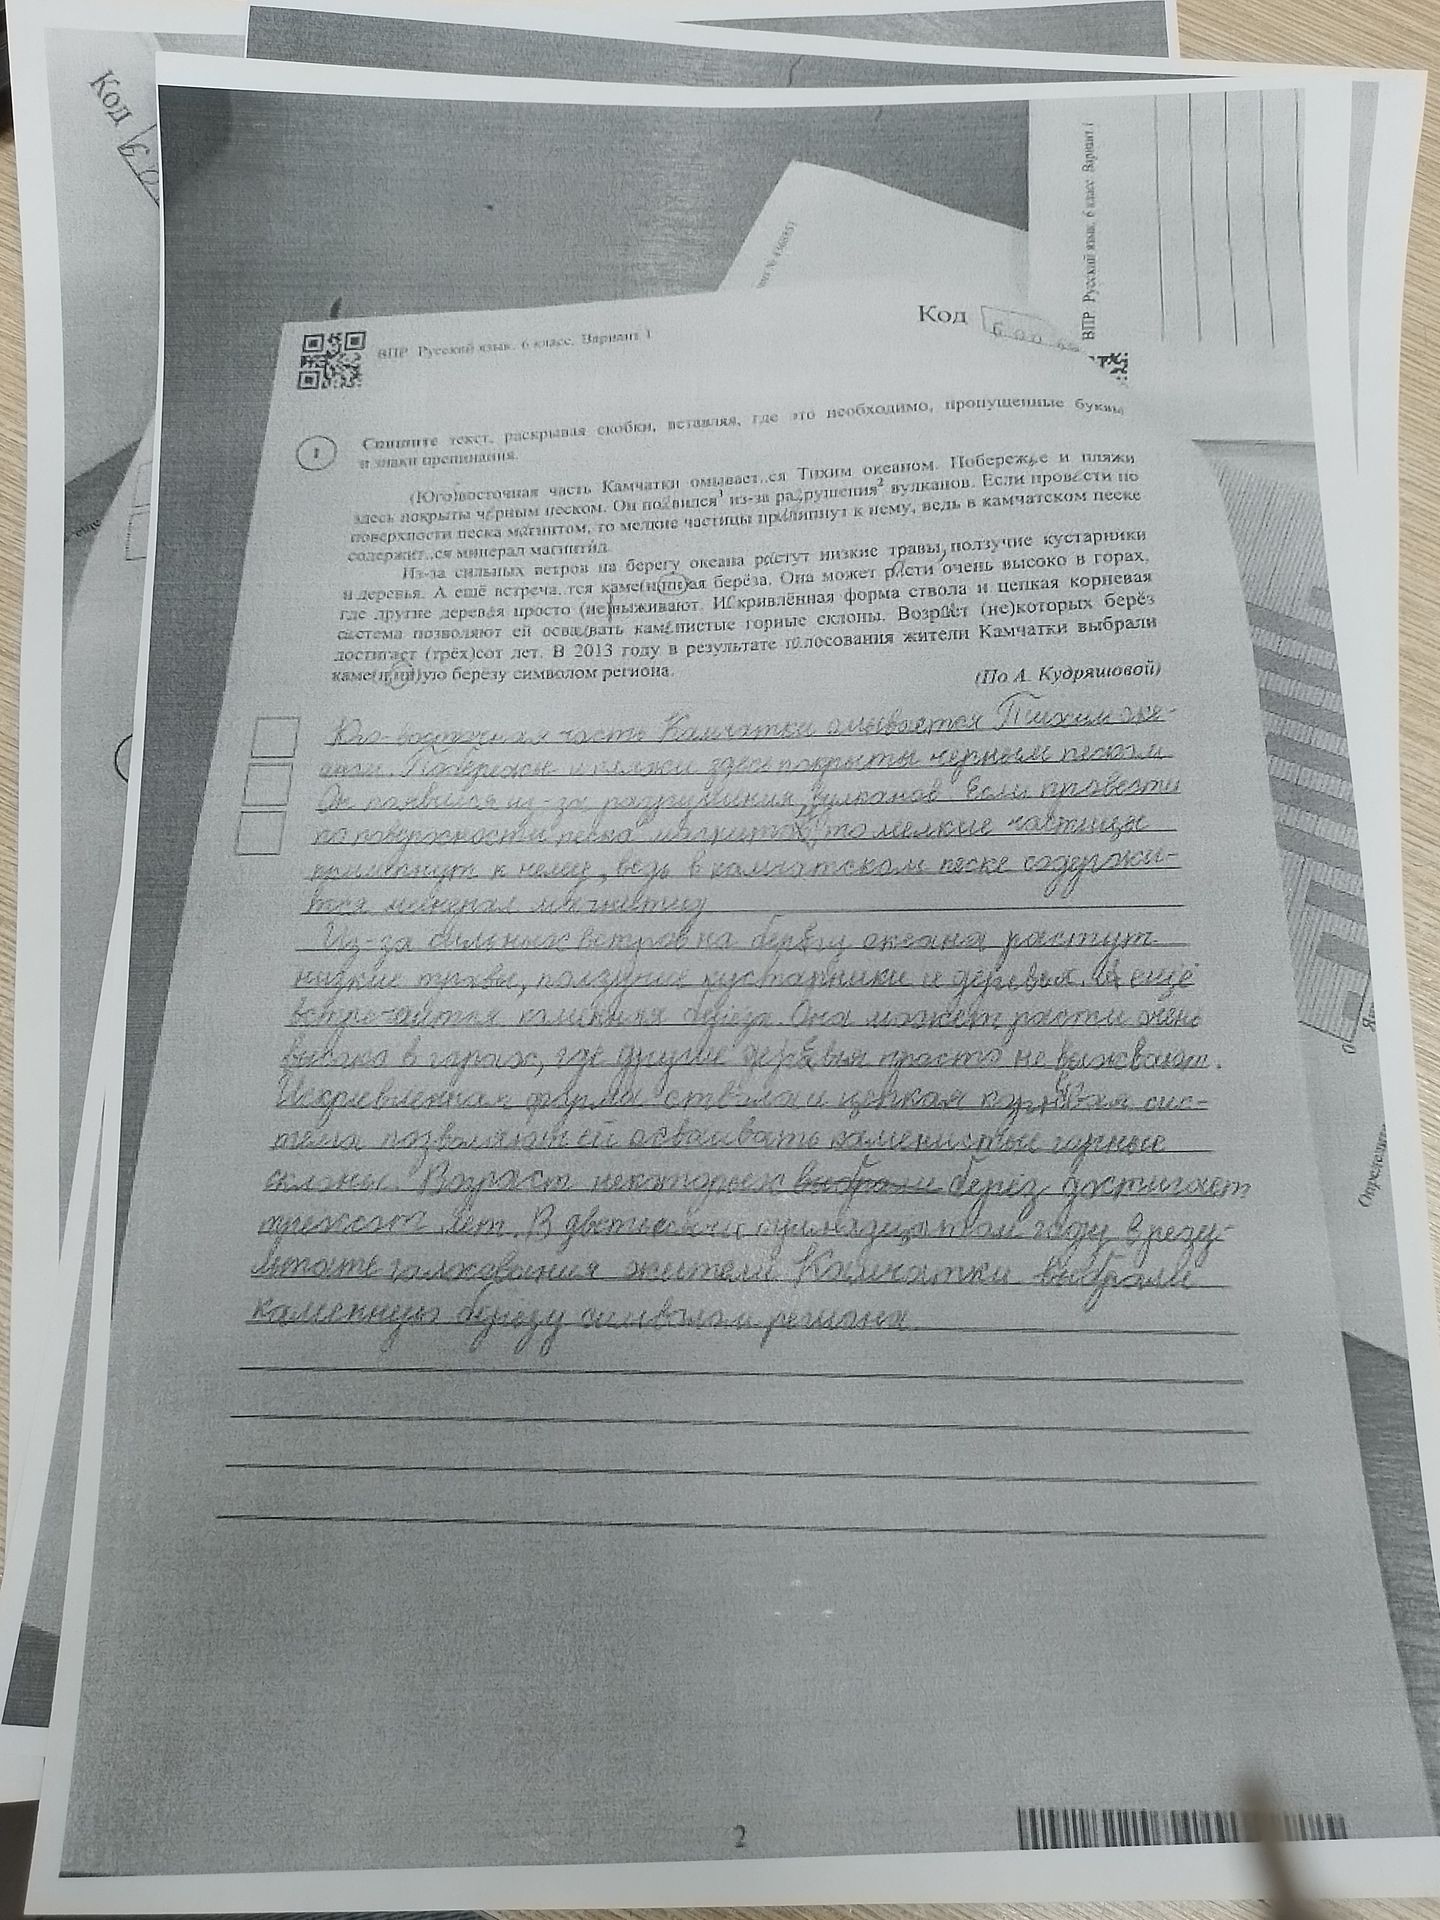 Код
ВПР. Русский язык. 6 класс. Вариант 1
Код
ВПР. Русский язык. 6 класс. Вариант 1
1
Спишите текст, раскрывая скобки, вставляя, где это необходимо, пропущенные буквы
и знаки препинания.
(Юго)восточная часть Камчатки омывает..ся Тихим океаном. Побереж..е и пляжи
здесь покрыты чёрным песком. Он появился¹ из-за разрушения² вулканов. Если провести по
поверхности песка магнитом, то мелкие частицы прилипнут к нему, ведь в камчатском песке
содержит..ся минерал магнетид.
Из-за сильных ветров на берегу океана растут низкие травы, ползучие кустарники
и деревья. А ещё встреча..тся каме(н,нн)ая берёза. Она может расти очень высоко в горах,
где другие деревья просто (не)выживают. Искривлённая форма ствола и цепкая корневая
система позволяют ей осваивать каменистые горные склоны. Возраст (не)которых берёз
достигает (трёх)сот лет. В 2013 году в результате голосования жители Камчатки выбрали
каме(н,нн)ую берёзу символом региона.
(По А. Кудряшовой)
Юго-восточная часть Камчатки омывается Тихим оке-
аном. Побережье и пляжи здесь покрыты чёрным песком
Он появился из-за разрушения вулканов Если провести
по поверхности песка магнитом, то мелкие частицы
прилипнут к нему, ведь в камчатском песке содержи-
тся минерал магнетид
Из-за сильных ветров на берегу океана растут
низкие травы, ползучие кустарники и деревья. А ещё
встречается каменая берёза. Она может расти очень
высоко в горах, где другие деревья просто не выживают.
Искривленная форма ствола и цепкая корневая сис-
тема позволяют ей осваивать каменистые горные
склоны. Возраст некоторых выбрали берёз достигает
трехсот лет. В дветысячи тринадцатом году в резу-
льтате голосования жители Камчатки выбрали
каменную берёзу символом региона
2